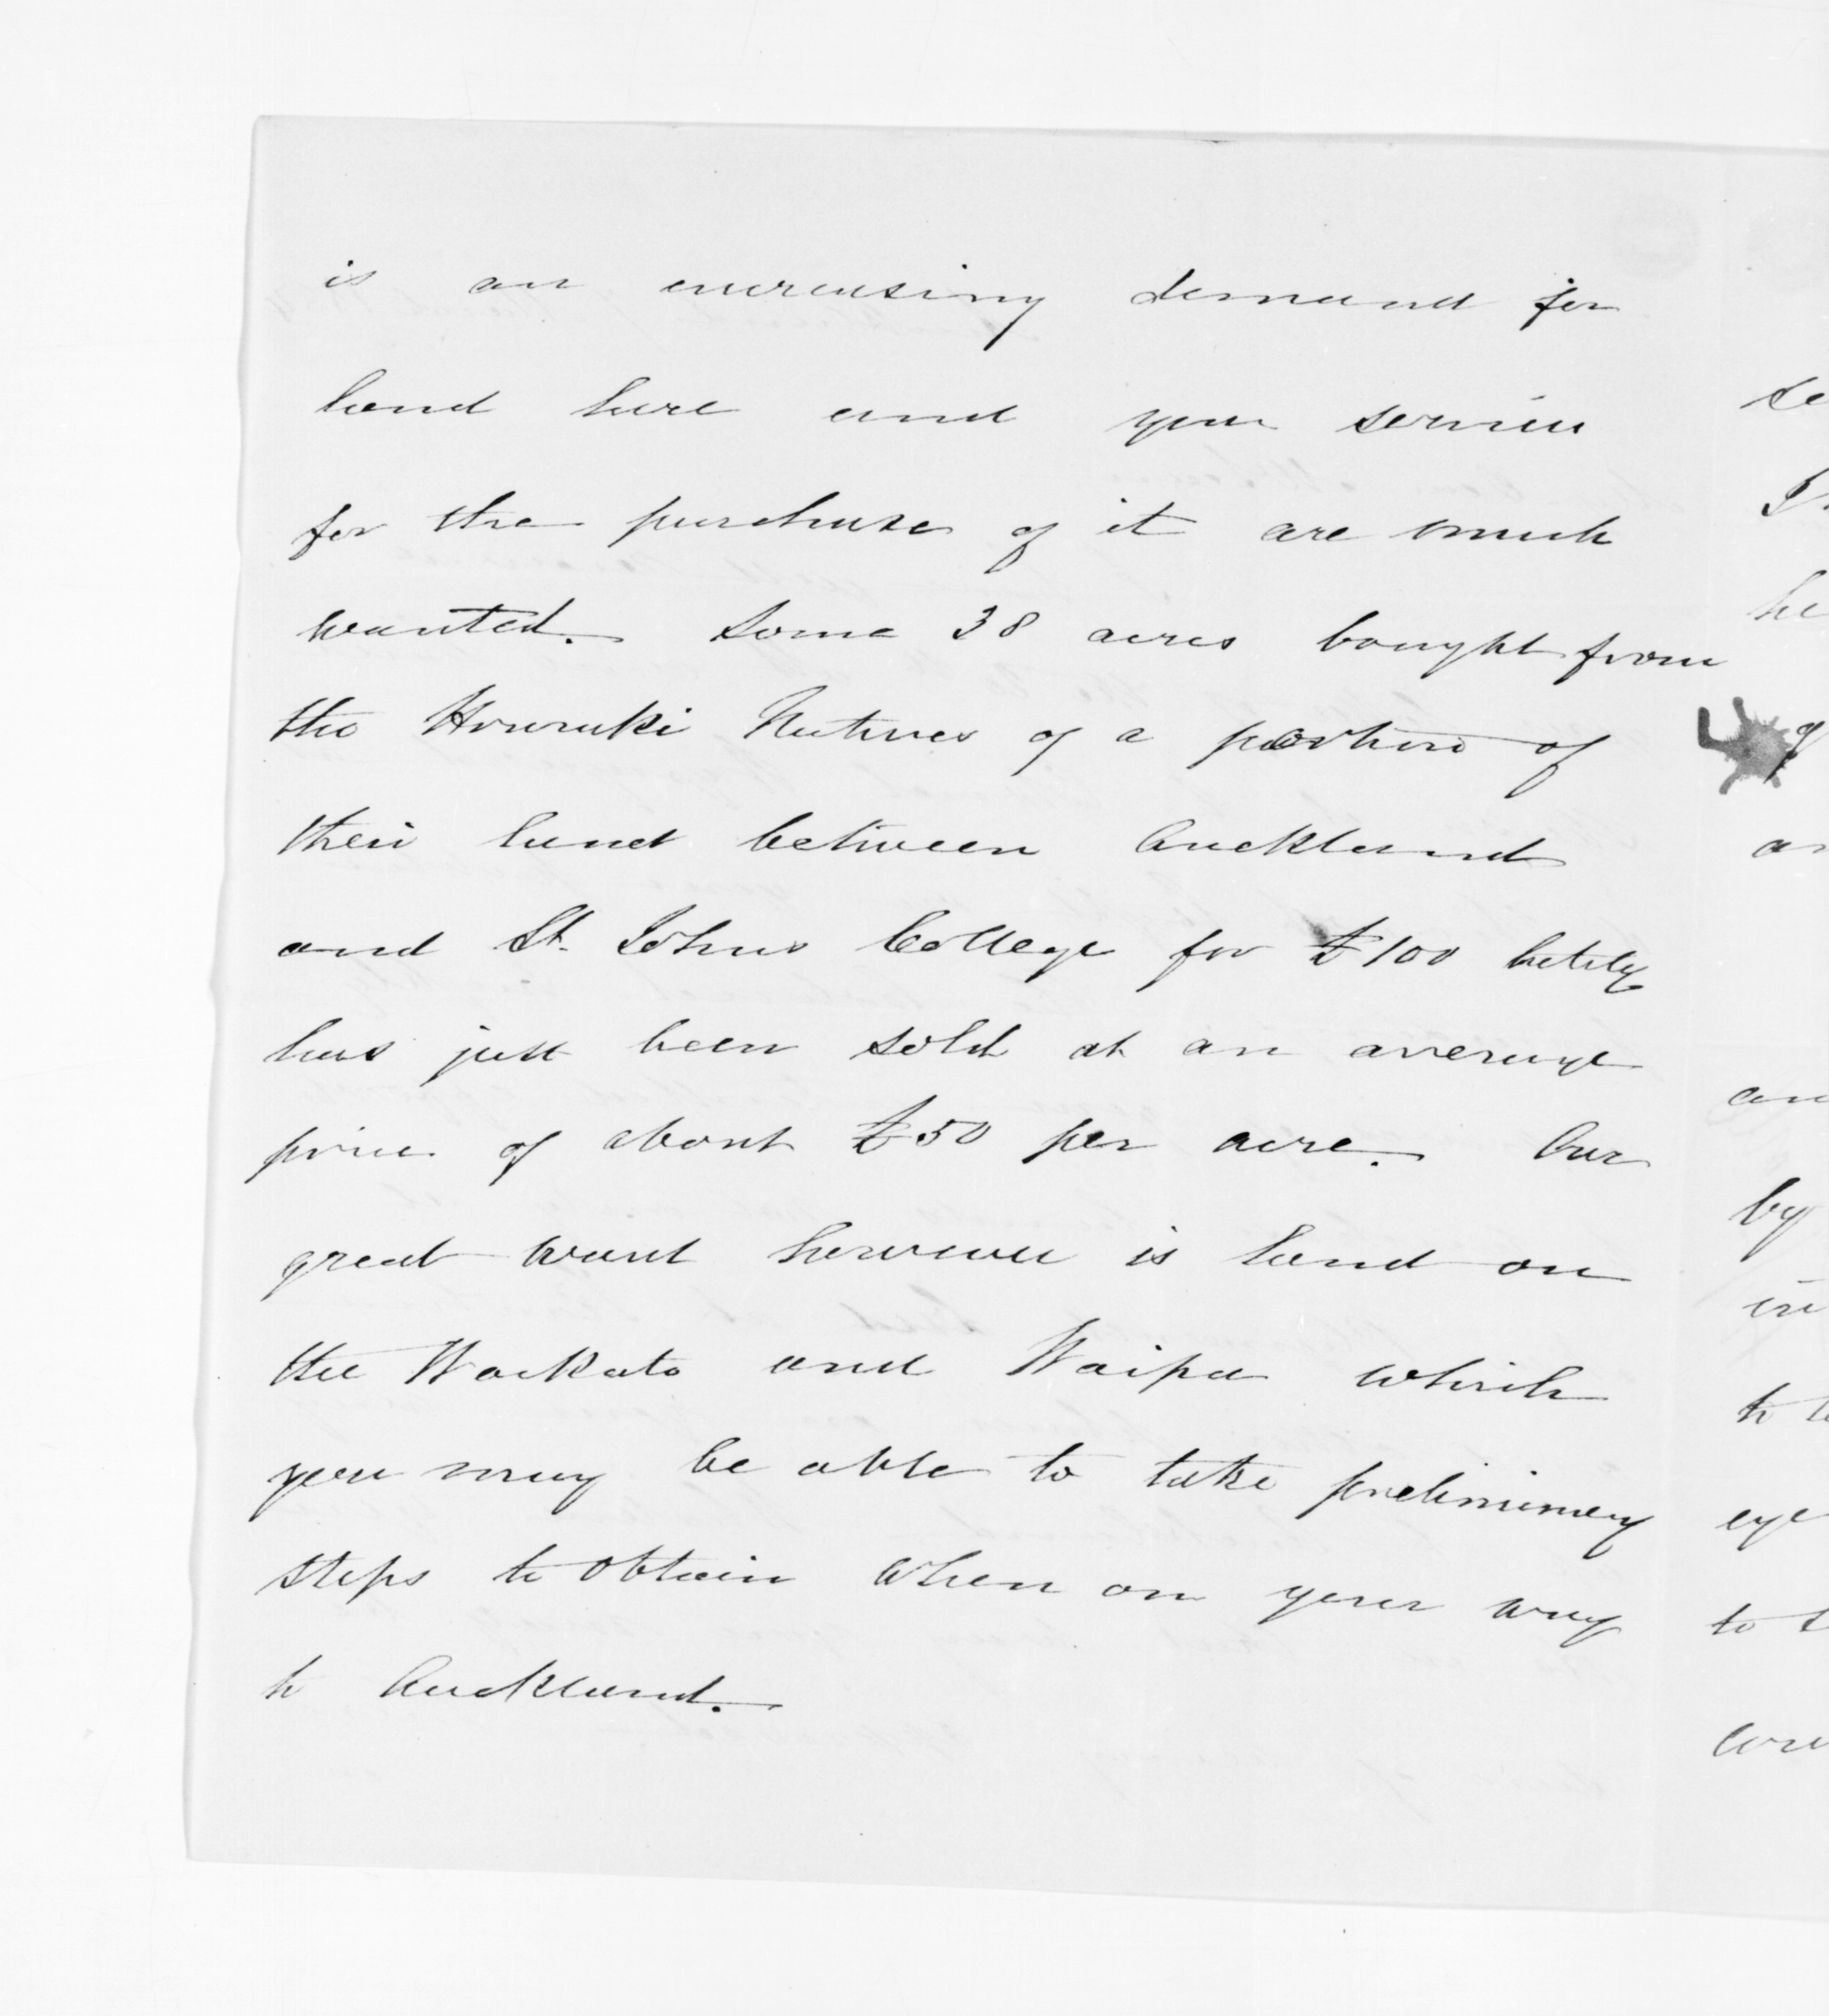 is an encreasing demand for
land here and your services
for the purchase of it are much
wanted. Some 38 acres bought from
the Houraki Natives of a portion of
their land between Auckland
and St. Johns College for £100 lately
has just been sold at an average
price of about £50 per acre. Our
great want however is land on
the Waikato and Waipa which
you may be able to take preliminary
steps to obtain when on your way
to Auckland.